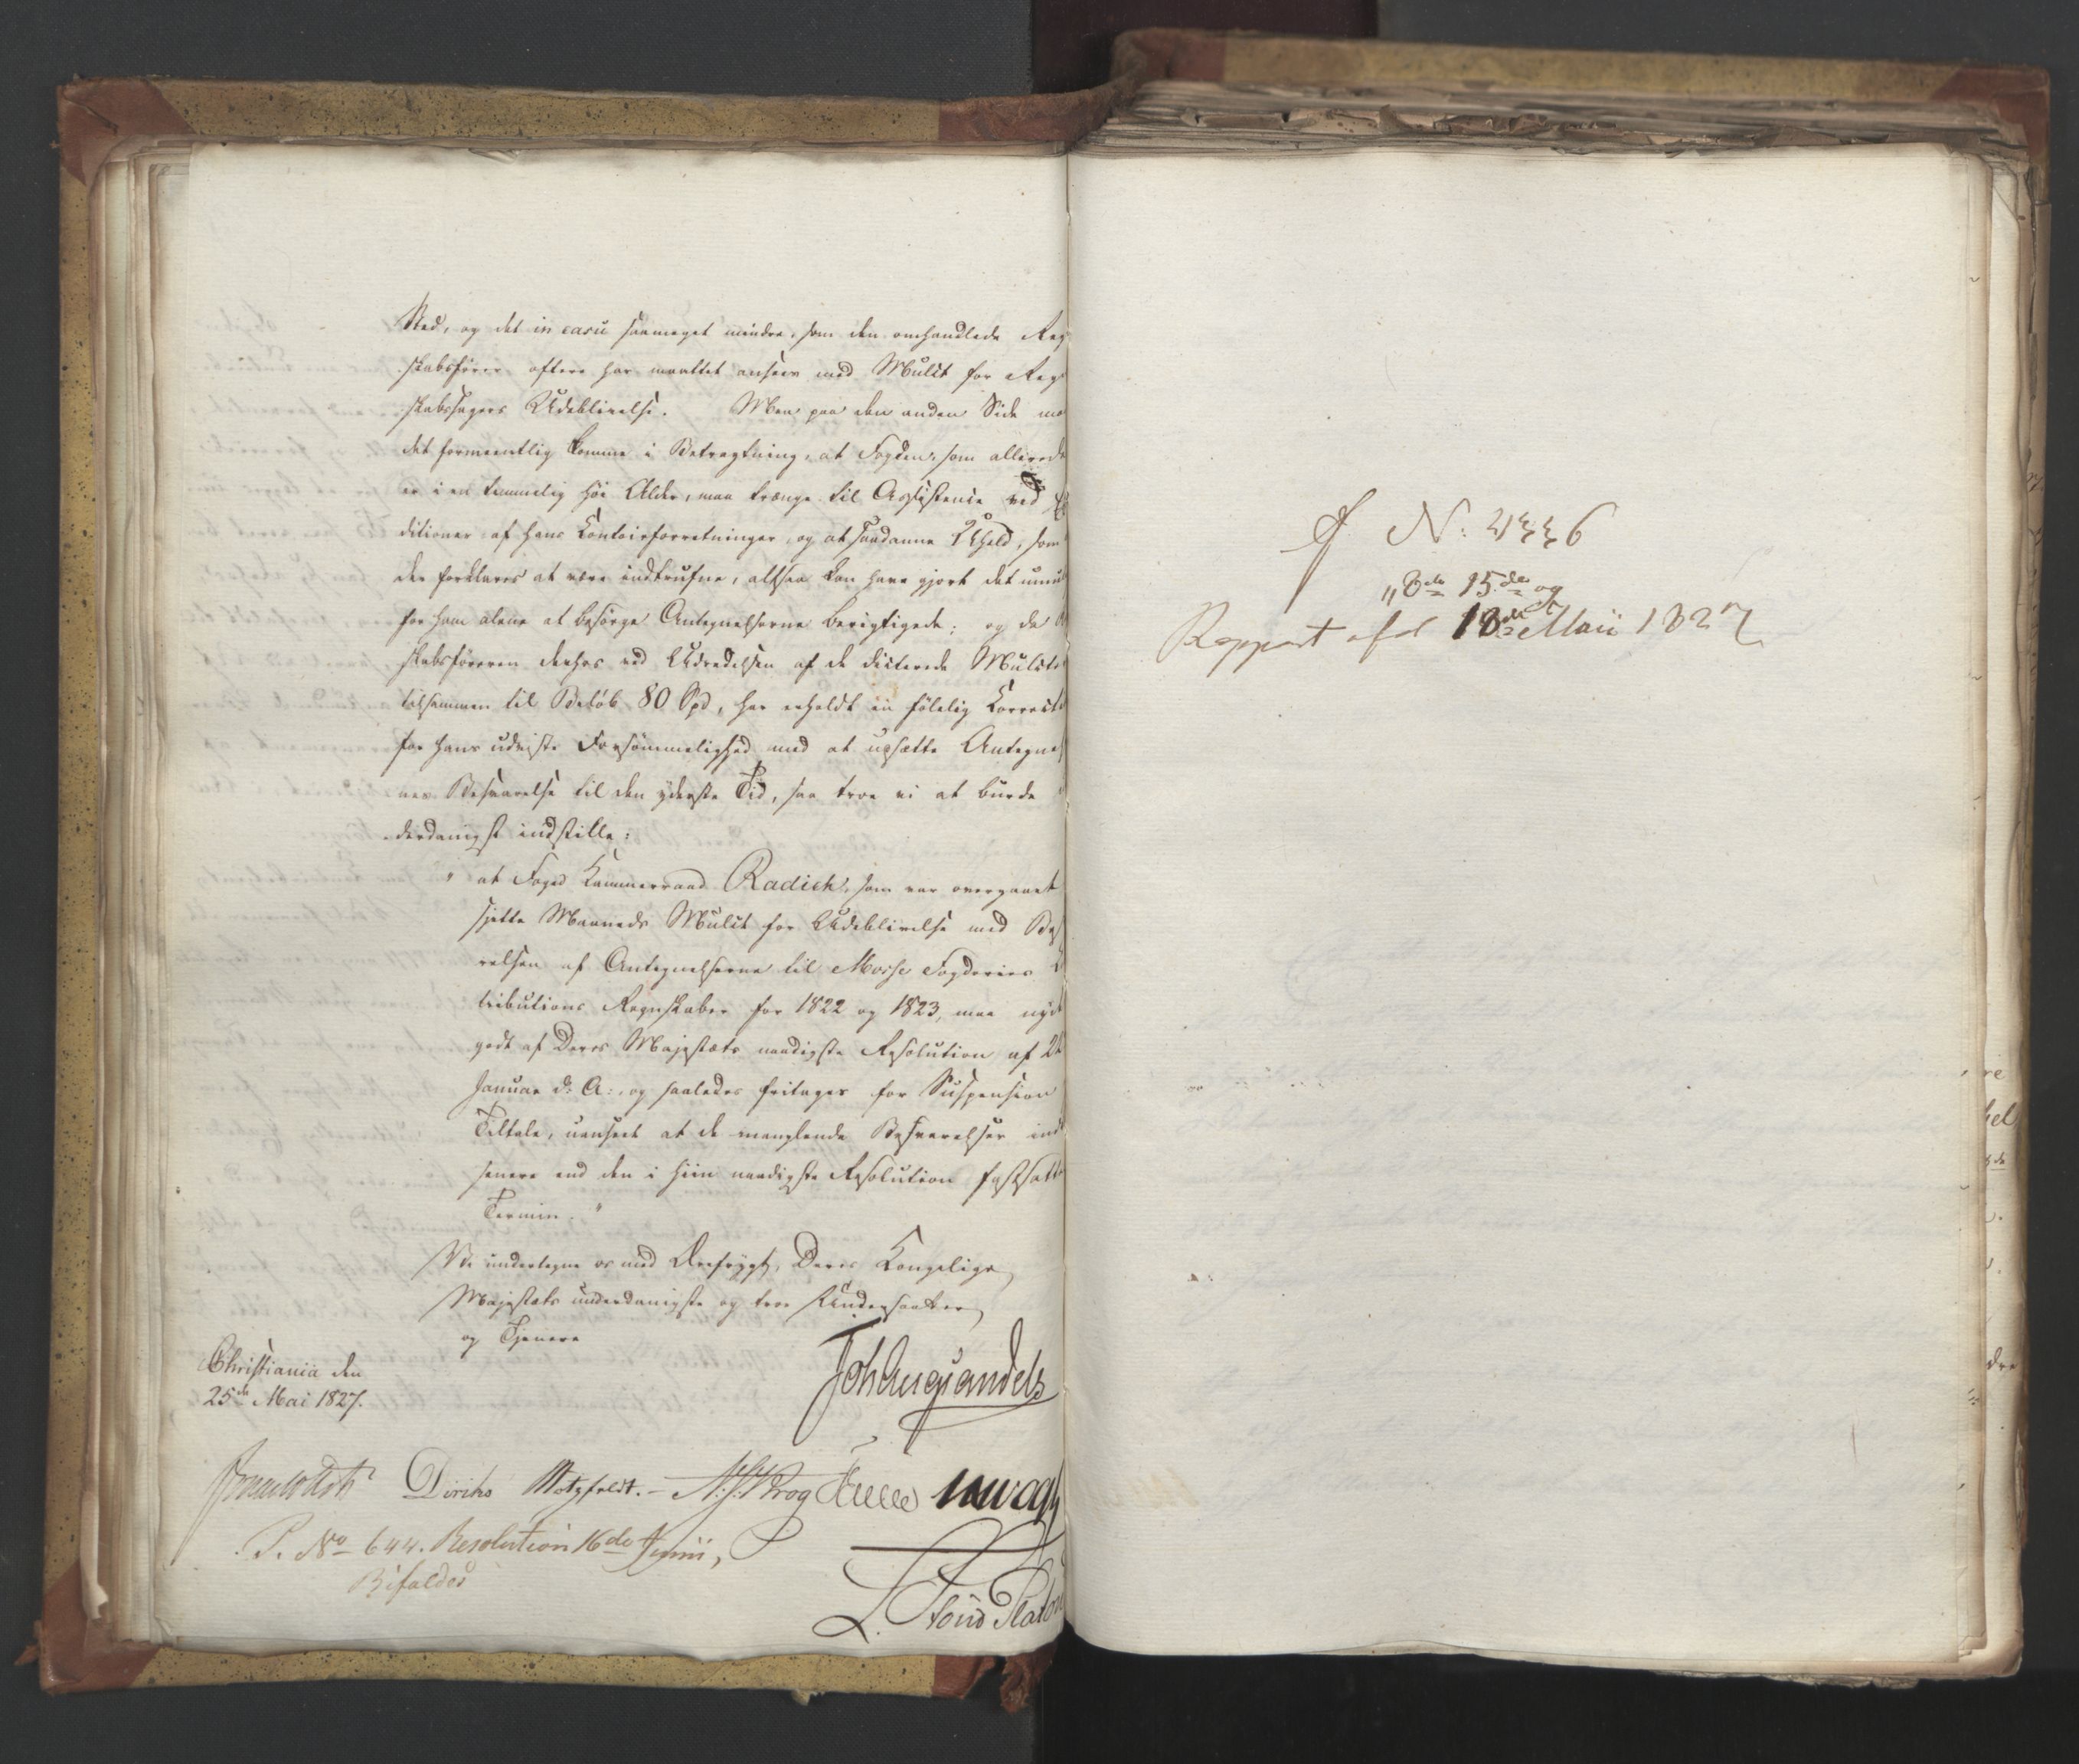 Sted, og det in casu saameget mindre, som den omhandlede Reg
skabsfører oftere har maattet ansees med Mulct for Reg
skabssagers Udeblivelse. Men paa den anden Side maa
det formeentlig komme i Betragtning, at Fogden, som allerede
er i en temmelig høi Alder, maa trænge til Assistence ved
ditioner af hans Contoirforretninger, og at saadanne Uheld, som
der forklares at være indtrufne, altsaa kan have gjort det umu
for ham alene at besørge Antegnelserne berigtigede; og da
skabsføreren derhos ved Udredelsen af de dicterede Mulcter
tilsammen til Beløb 80 Spd, har erholdt en følelig Correct
for hans udviste Forsømmelighed med at udsætte Antegnel
nes Besvarelse til den yderste Tid, saa troe vi at burde
derdanigst indstille:
" at Foged Kammerraad Radich, som var overgaaet
sjette Maaneds Mulct for Udeblivelse med Bes
relsen af Antegnelserne til Mosse Fogderies
tributions Regnskaber for 1822 og 1823, maa nyde
godt af Deres Majestæts naadigste Resolution af 2
Januar d: A:, og saaledes fritages for Suspension
Tiltale, uanseet at de manglende Besvarelser ind
senere end den i hiin naadigste Resolution fastsatte
Termin. "
Vi undertegne os med Ærefrygt, Deres Kongelige
Majestæts underdanigste og troe Undersaatter
og Tjenere
Christiania den
25de Mai 1827.
Joh Aug Sandels
Diriks Motzfeldt. — N. J. Krog
P. No 644. Resolution 16de Junii,
Bifaldes
L. Stoud Platou
N: 4336
" 8de 15de og
Rapport af d 18de Maii 1827